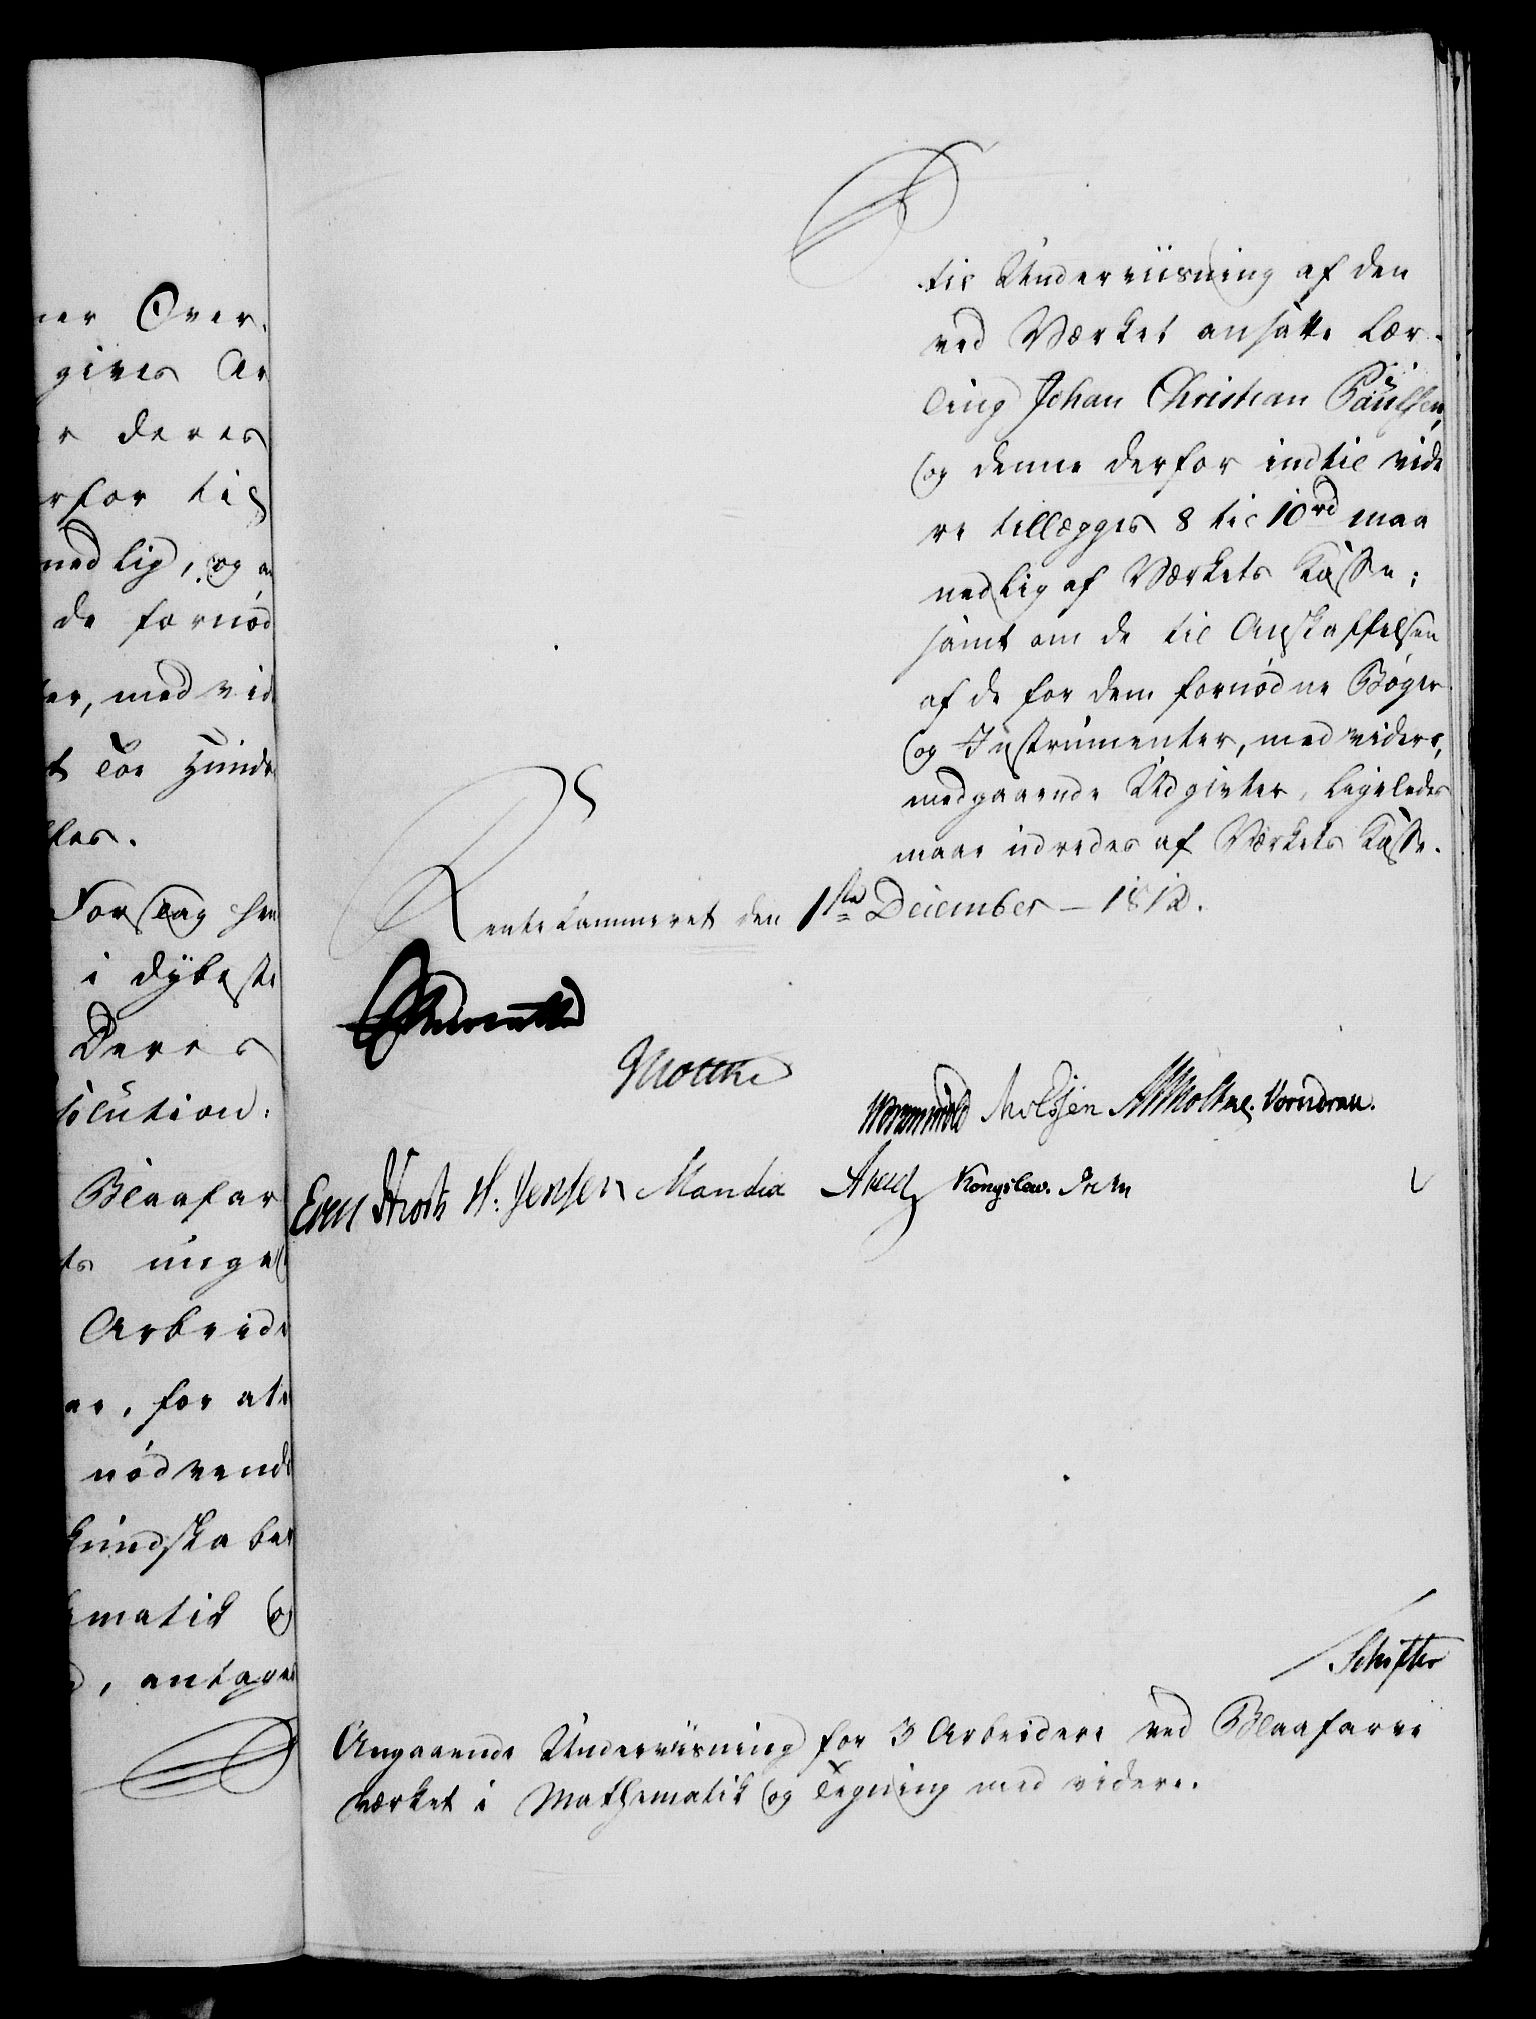 ner Over-
gives Ar
r deres
rfor til
nedlig, og
de fornød
er, med vid
t Toe Hundr
ttes.
Forslag hen
i dybeste
Deres
solution:
Blaafar
ts unge
Arbeide
re, for at
nødvend
Kundskaber
matik og
, antages
til Underviisning af den
ved Værket ansatte Lær-
ling Johan Christian Paulsen,
og denne derfor indtil vide
re tillægges 8 til 10 rd maa
nedlig af Værkets Kasse;
samt om de til Anskaffelsen
af de for dem fornødne Bøger
og Instrumenter, med videre,
medgaaende Udgivter, ligeledes
maae udredes af Værkets Kasse.
Rentekammeret den 1ste December – 1812.
Moltke
Wormskiold Moltke. Vorndran.
H. Jensen Mandix Kongslew.
Schifter
Angaaende Underviisning for 3 Arbeidere ved Blaafarve
værket i Mathematik og Tegning med videre.